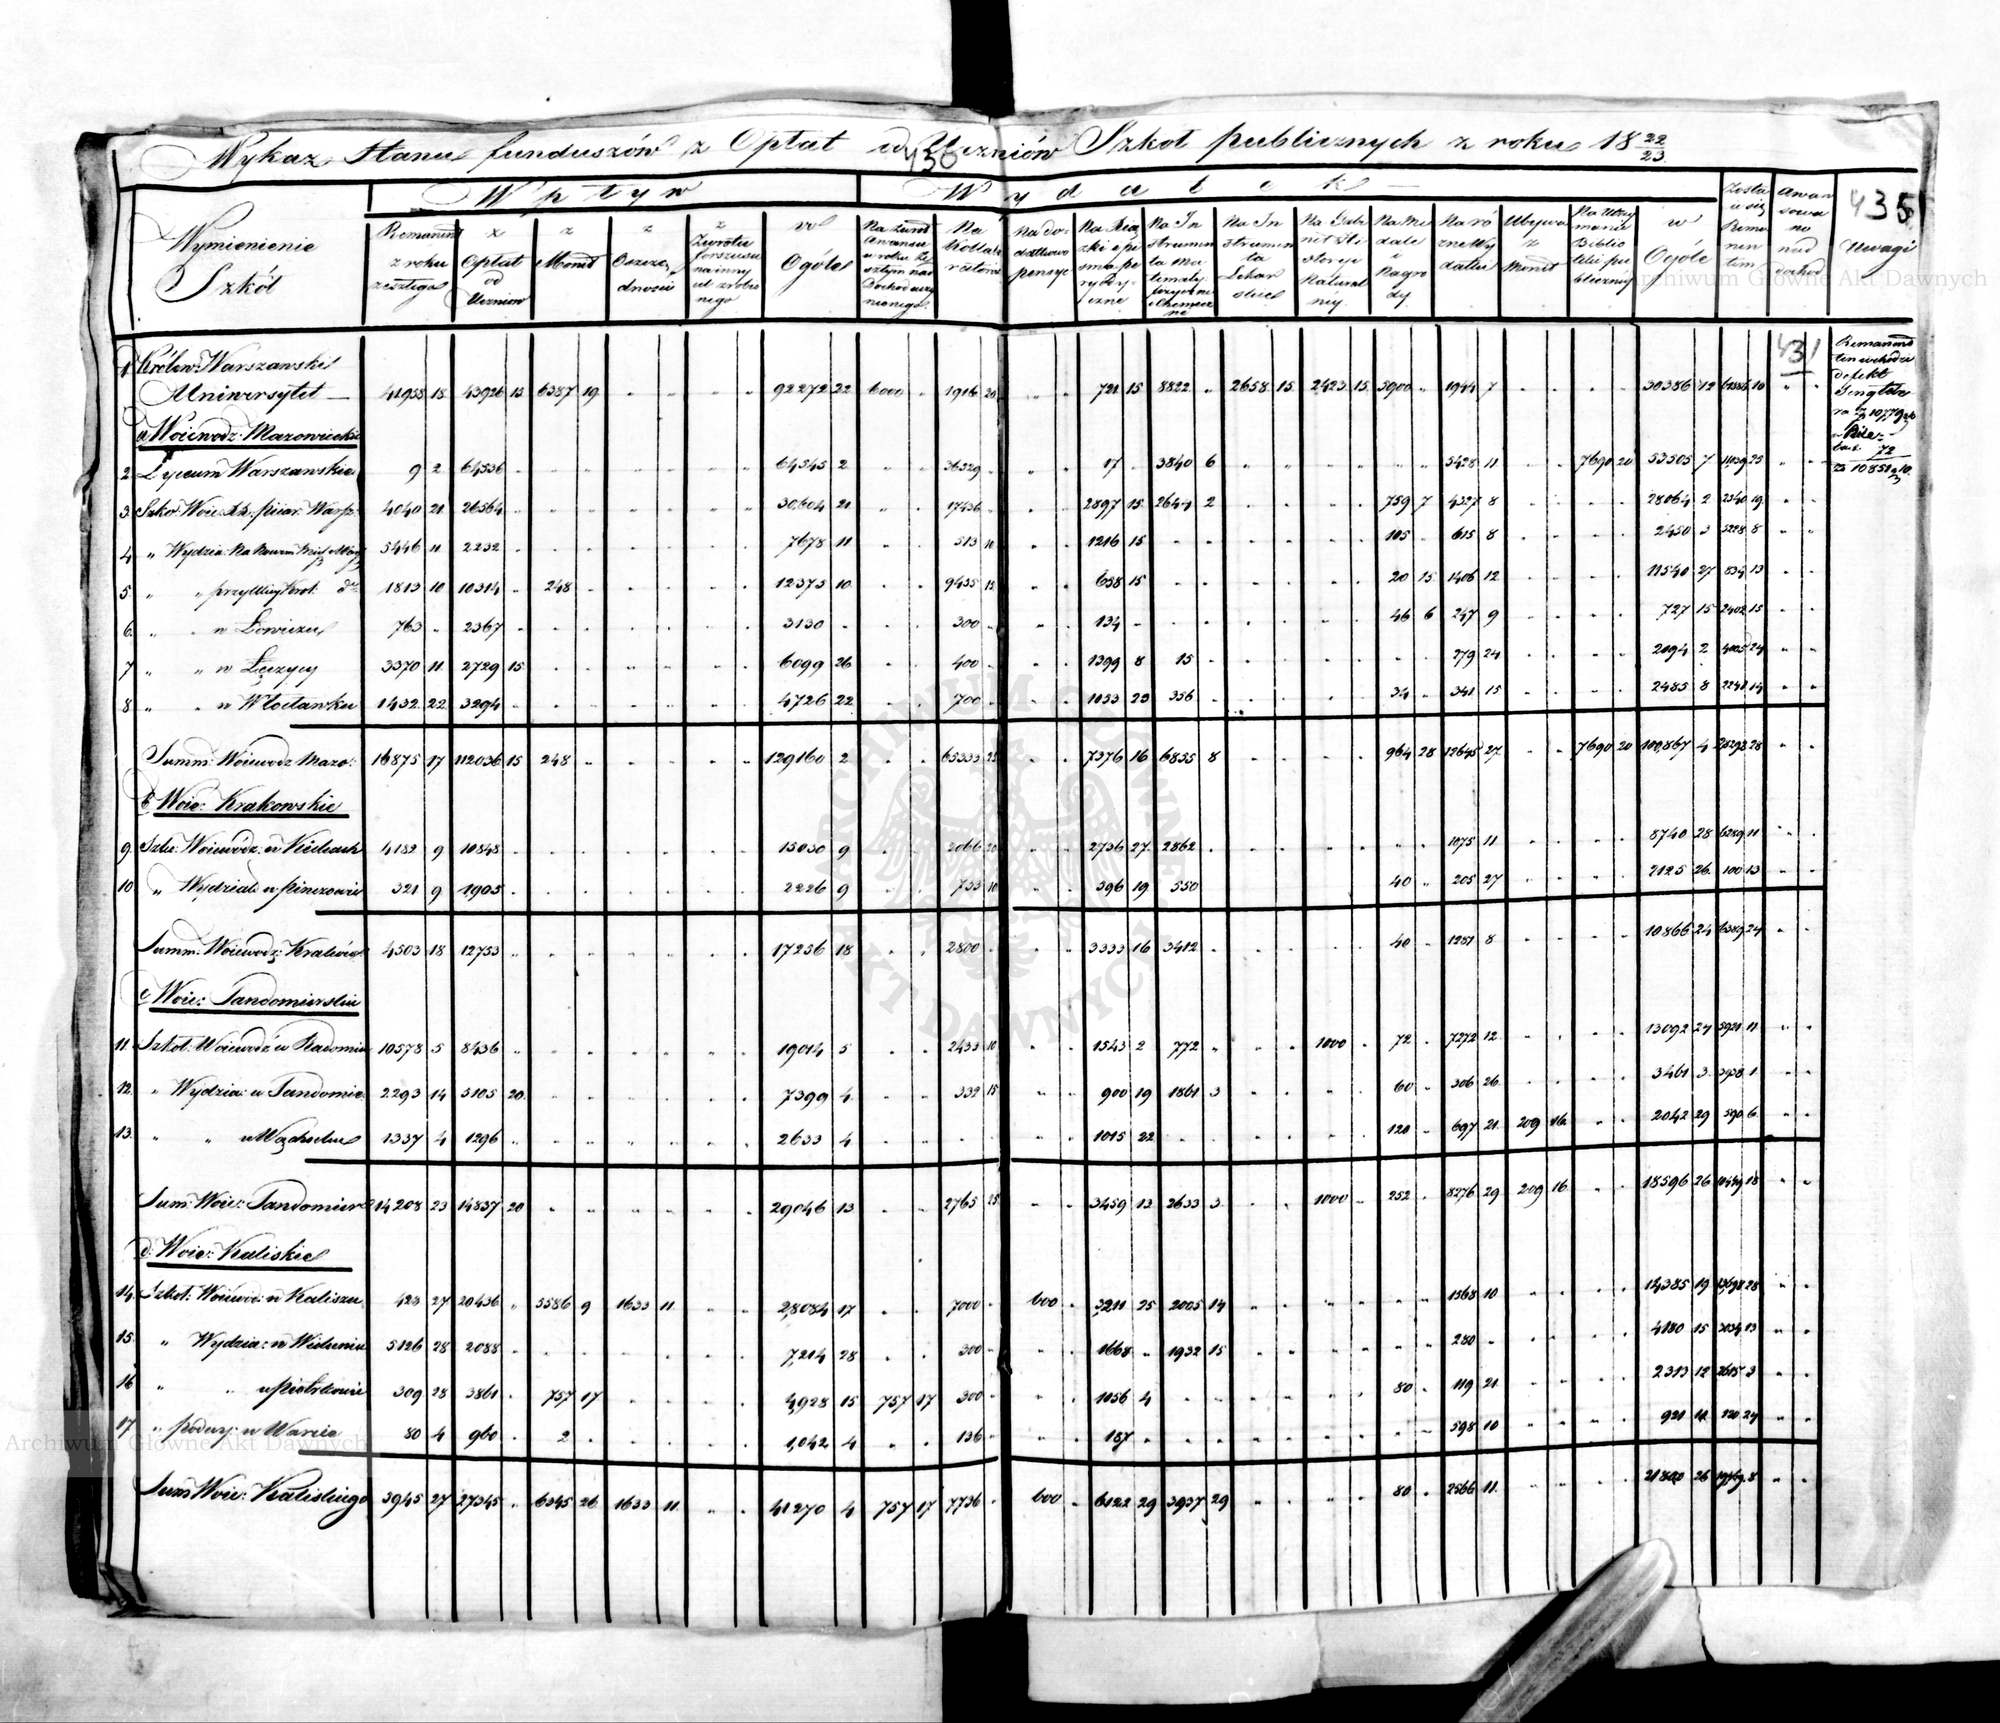 Wykaz Stanu funduszów z Opłat od Uczniów Szkół publicznych z roku 18 22/23
436
435
431
Wpływ
Wydatek
Wymienienie Szkół
Remanent z roku zeszłego
z Opłat od Uczniów
z Monet
z Oszczędności
z Zwrotu forszusu na inny cel zrobionego
w Ogóle
Na
Na Kollaboratorów
Na dodatkowe pensye
Na Książki i pisma peryodyczne
Na Instrumenta Matematy: fizyczne i Chemiczne
Na Instrumenta Lekarskie
Na Gabinet Historyi Naturalnej
Na Medale i Nagrody
Na różne wydatki
Ubywa z Monet
Na utrzymanie Biblioteki publicznej
w Ogóle
Zostaie się Remanentem
Awansowano nad dochod
Uwagi
1 Królew: Warszawski
Uniwersytet 41958 18 43926 15 6387 19 92272 22 6000 1916 20 721 15 8822 2658 15 2423 15 5900 1944 7 30386 12
a Woiewodz: Mazowieckie
2 Lyceum Warszawskie 9 2 64536 64545 2 36529 17 3840 6 5428 11 7690 20 53505 7 11039 25
3 Szkoł: Woie: XX. piiar: Warsz: 4040 21 26564 30,604 21 17456 2897 15 2644 2 759 7 4327 8 28064 2 2540 19
4 " Wydzia: Na Nowem 5446 11 2232 7678 11 513 10 1216 15 105 615 8 2450 3 5228 8
5 " " przy Ulicy Krol: do 1813 10 10314 248 12375 10 9435 15 658 15 20 15 1406 12 11540 27 834 13
6 " " w Łowiczu 763 2367 3130 300 134 46 6 247 9 727 15 2402 15
7 " " w Łęczycy 3370 11 2729 15 6099 26 400 1399 8 15 279 24 2094 2 4005 24
8 " " w Włocławku 1432 22 3294 4726 22 700 1053 23 356 34 341 15 2485 8 2241 14
Summ: Woiewodz Mazo: 16875 17 112036 15 248 129160 2 65333 25 7376 16 6855 8 964 28 12645 27 7690 20 100,867 4 28292 28
b Woie: Krakowskie
9 Szko: Woiewódz: w Kielcach 4182 9 10848 15030 9 2066 20 2736 27 2862 1075 11 8740 28 6289 11
10 " Wydział: w pinczowie 321 9 1905 2226 9 733 10 596 19 550 40 205 27 2125 26 100 13
Summ: Woiewodz: Krakows: 4503 18 12753 17256 18 2800 3333 16 3412 40 1281 8 10866 24 6389 24
c Woie: Sandomierskie
11 Szkoł: Woiewodz: w Radomiu 10578 5 8436 19014 5 2433 10 1543 2 772 1000 72 7272 12 13092 24 5921 11
12 " Wydzia: w Sandomie: 2293 14 5105 20 7399 4 332 15 900 19 1861 3 60 306 26 3461 3 3938 1
13 " " w Wąchocku 1337 4 1296 2633 4 1015 22 120 697 21 209 16 2042 29 590 6
Sum: Woie: Sandomier: 14208 23 14837 20 29046 13 2765 25 3459 13 2633 3 1000 252 8276 29 209 16 18596 26 10449 18
d Woie: Kaliskie
14 Szkoł: Woiewo: w Kaliszu 428 27 20436 5586 9 1633 11 28084 17 7000 600 3211 25 2005 14 1568 10 14,385 19 13698 28
15 " Wydzia: w Wieluniu 5126 28 2088 7,214 28 300 1668 1932 15 280 4180 15 3034 13
16 " " w piotrkowie 309 28 3861 757 17 4,928 15 757 17 300 1056 4 80 119 21 2313 12 2615 3
17 " podwy: w Warcie 80 4 960 2 1,042 4 136 187 598 10 921 10 120 24
Sum Woie: Kaliskiego 3945 27 27345 6345 26 1633 11 41270 4 757 17 7736 600 6122 29 3937 29 80 2566 11 21800 26 19469 8
Remanent
ten wchodzi
defekt
Archiwum Główne Akt Dawnych
Archiwum Główne Akt Dawnych
ARCHIWUM GŁÓWNE AKT DAWNYCH